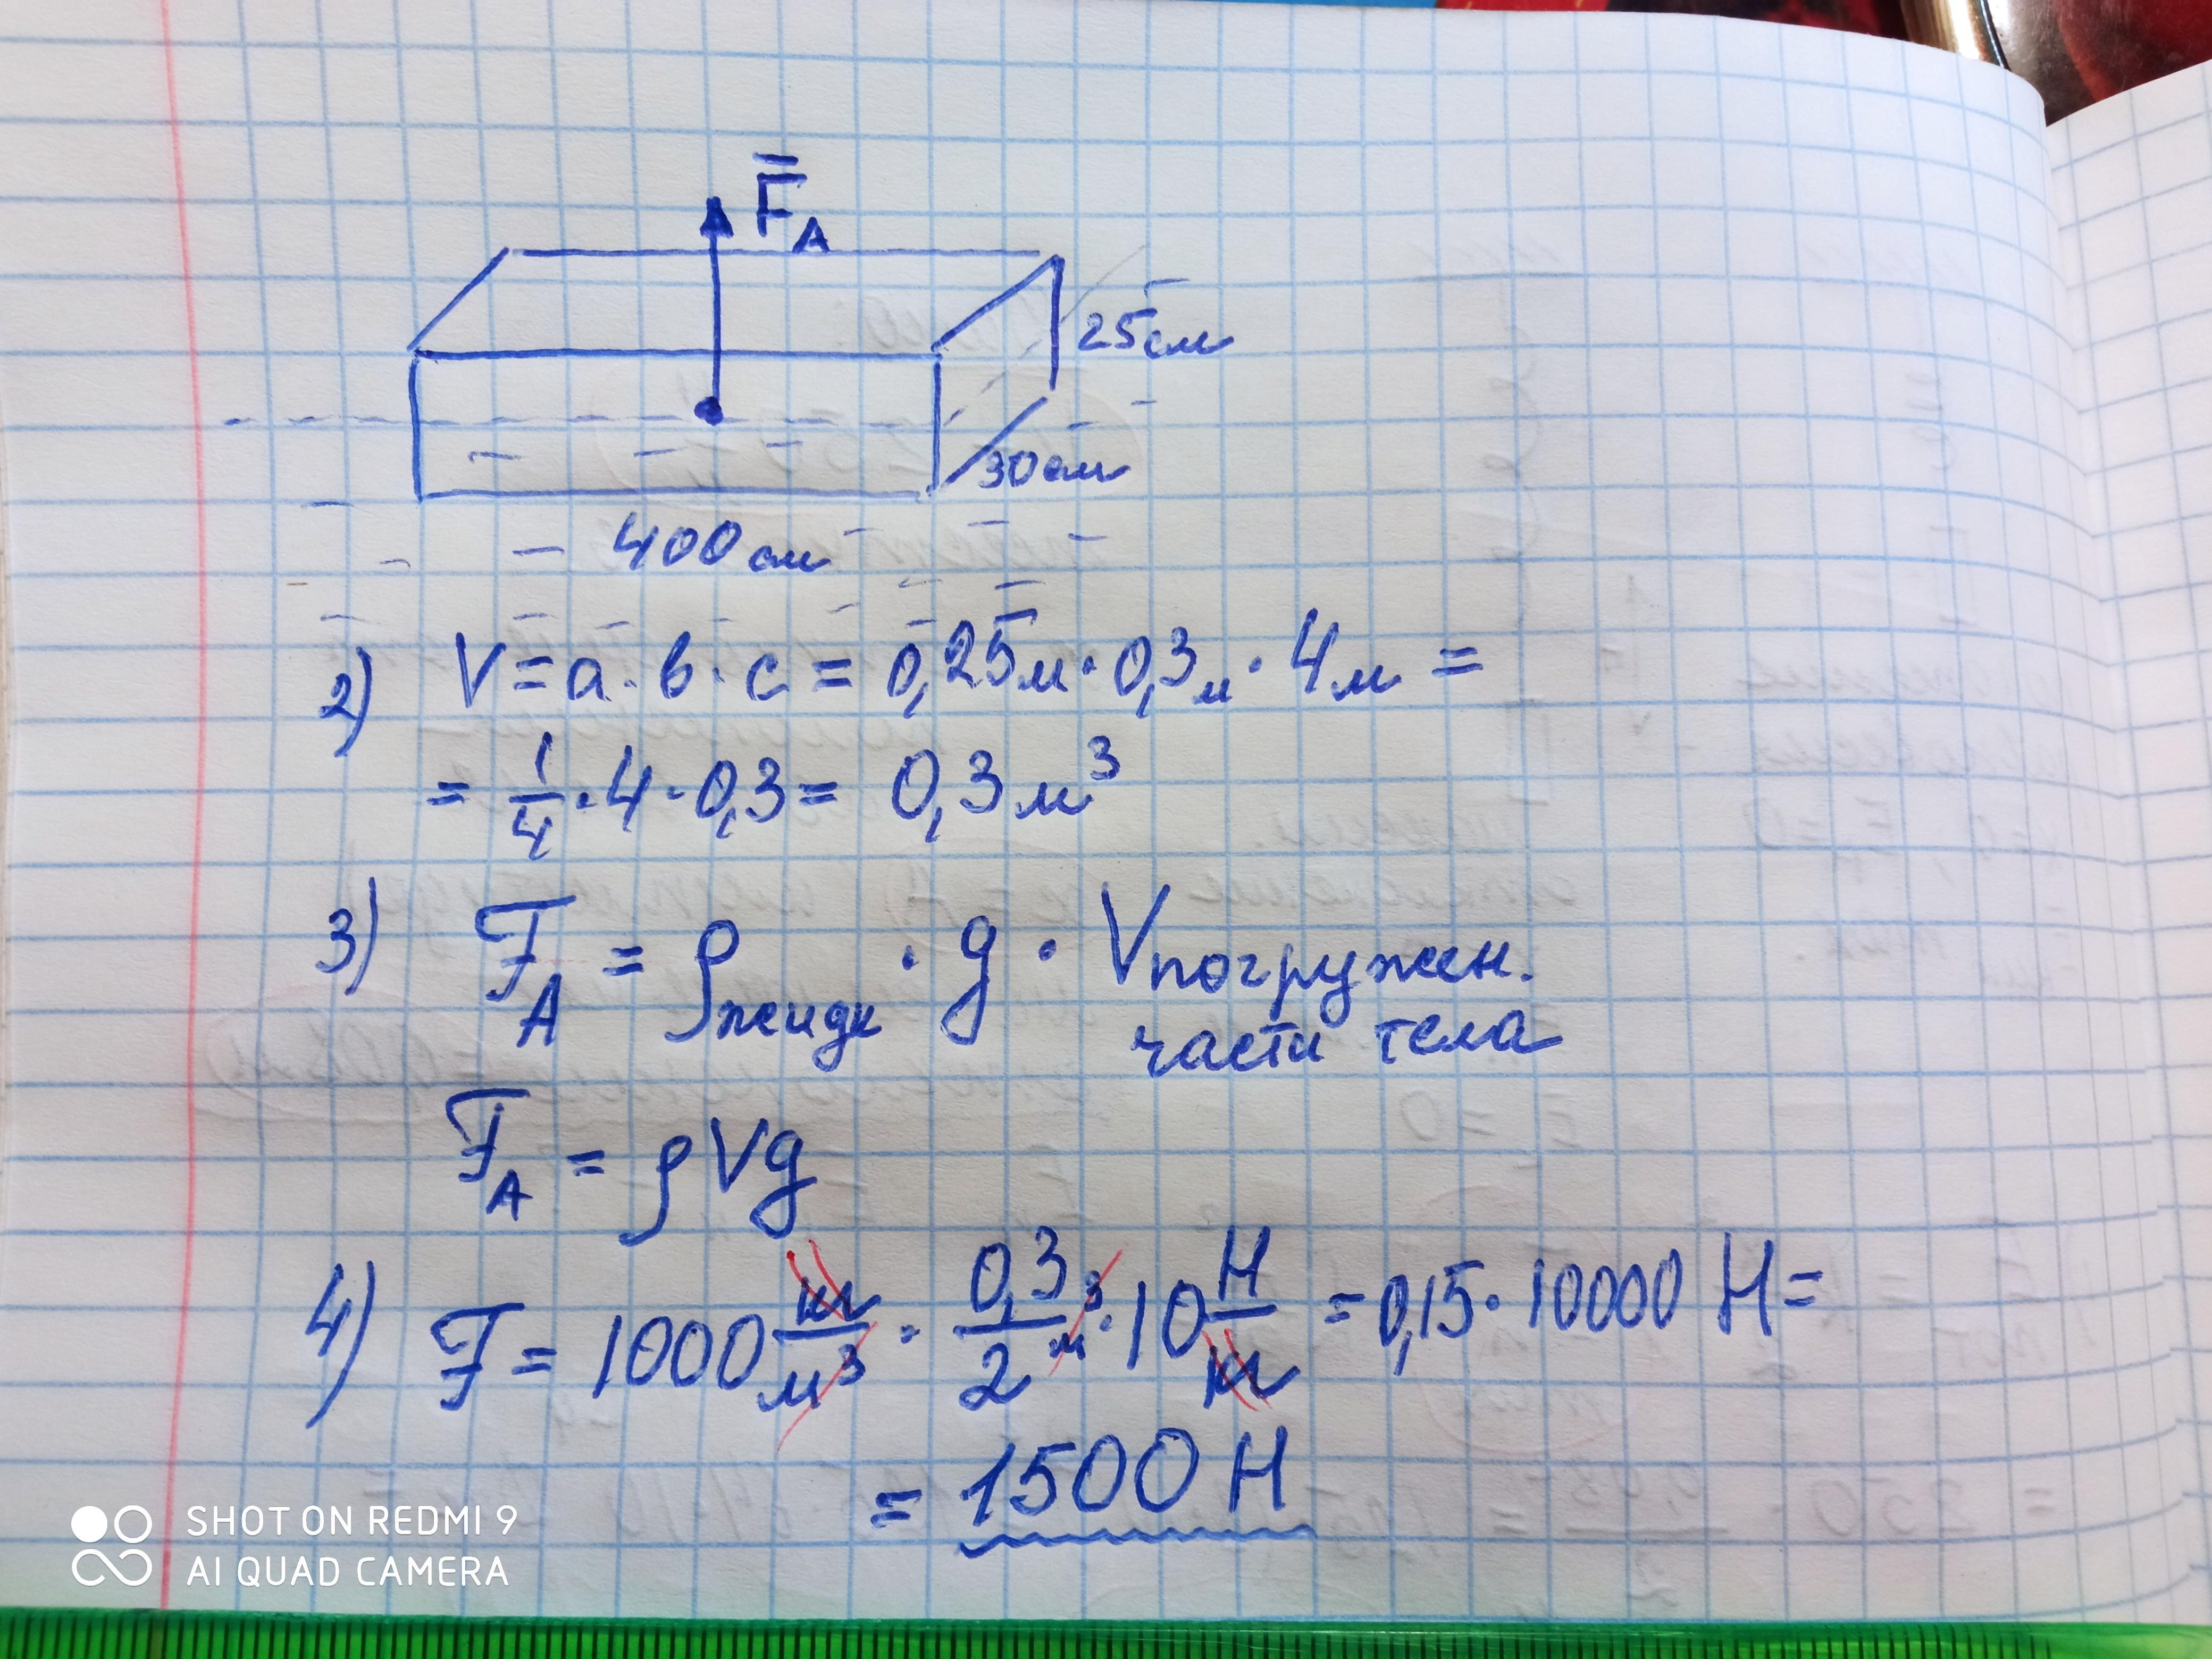 F̅_A
25см
30см
400см
2) V = a · в · с = 0,25м · 0,3м · 4м =
= 1/4 · 4 · 0,3 = 0,3 м³
3) F_A = ρ жидк · g · V погружен.
части тела
F_A = ρVg
4) F = 1000 кг/м³ · 0,3/2 м³ · 10 Н/кг = 0,15 · 10000 Н =
= 1500 Н
SHOT ON REDMI 9
AI QUAD CAMERA